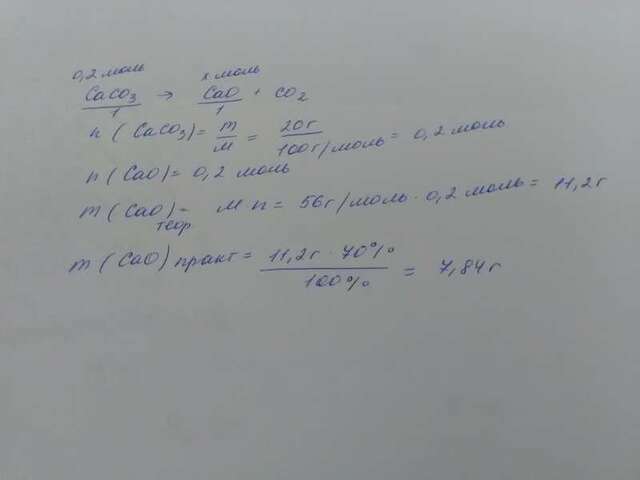 0,2 моль x моль
CaCO3 → CaO + CO2
1 1
n (CaCO3) = m/M = 20г/100г/моль = 0,2 моль
n (CaO) = 0,2 моль
m (CaO) теор = M · n = 56г/моль · 0,2 моль = 11,2г
m (CaO) практ = 11,2г · 70%/100% = 7,84г